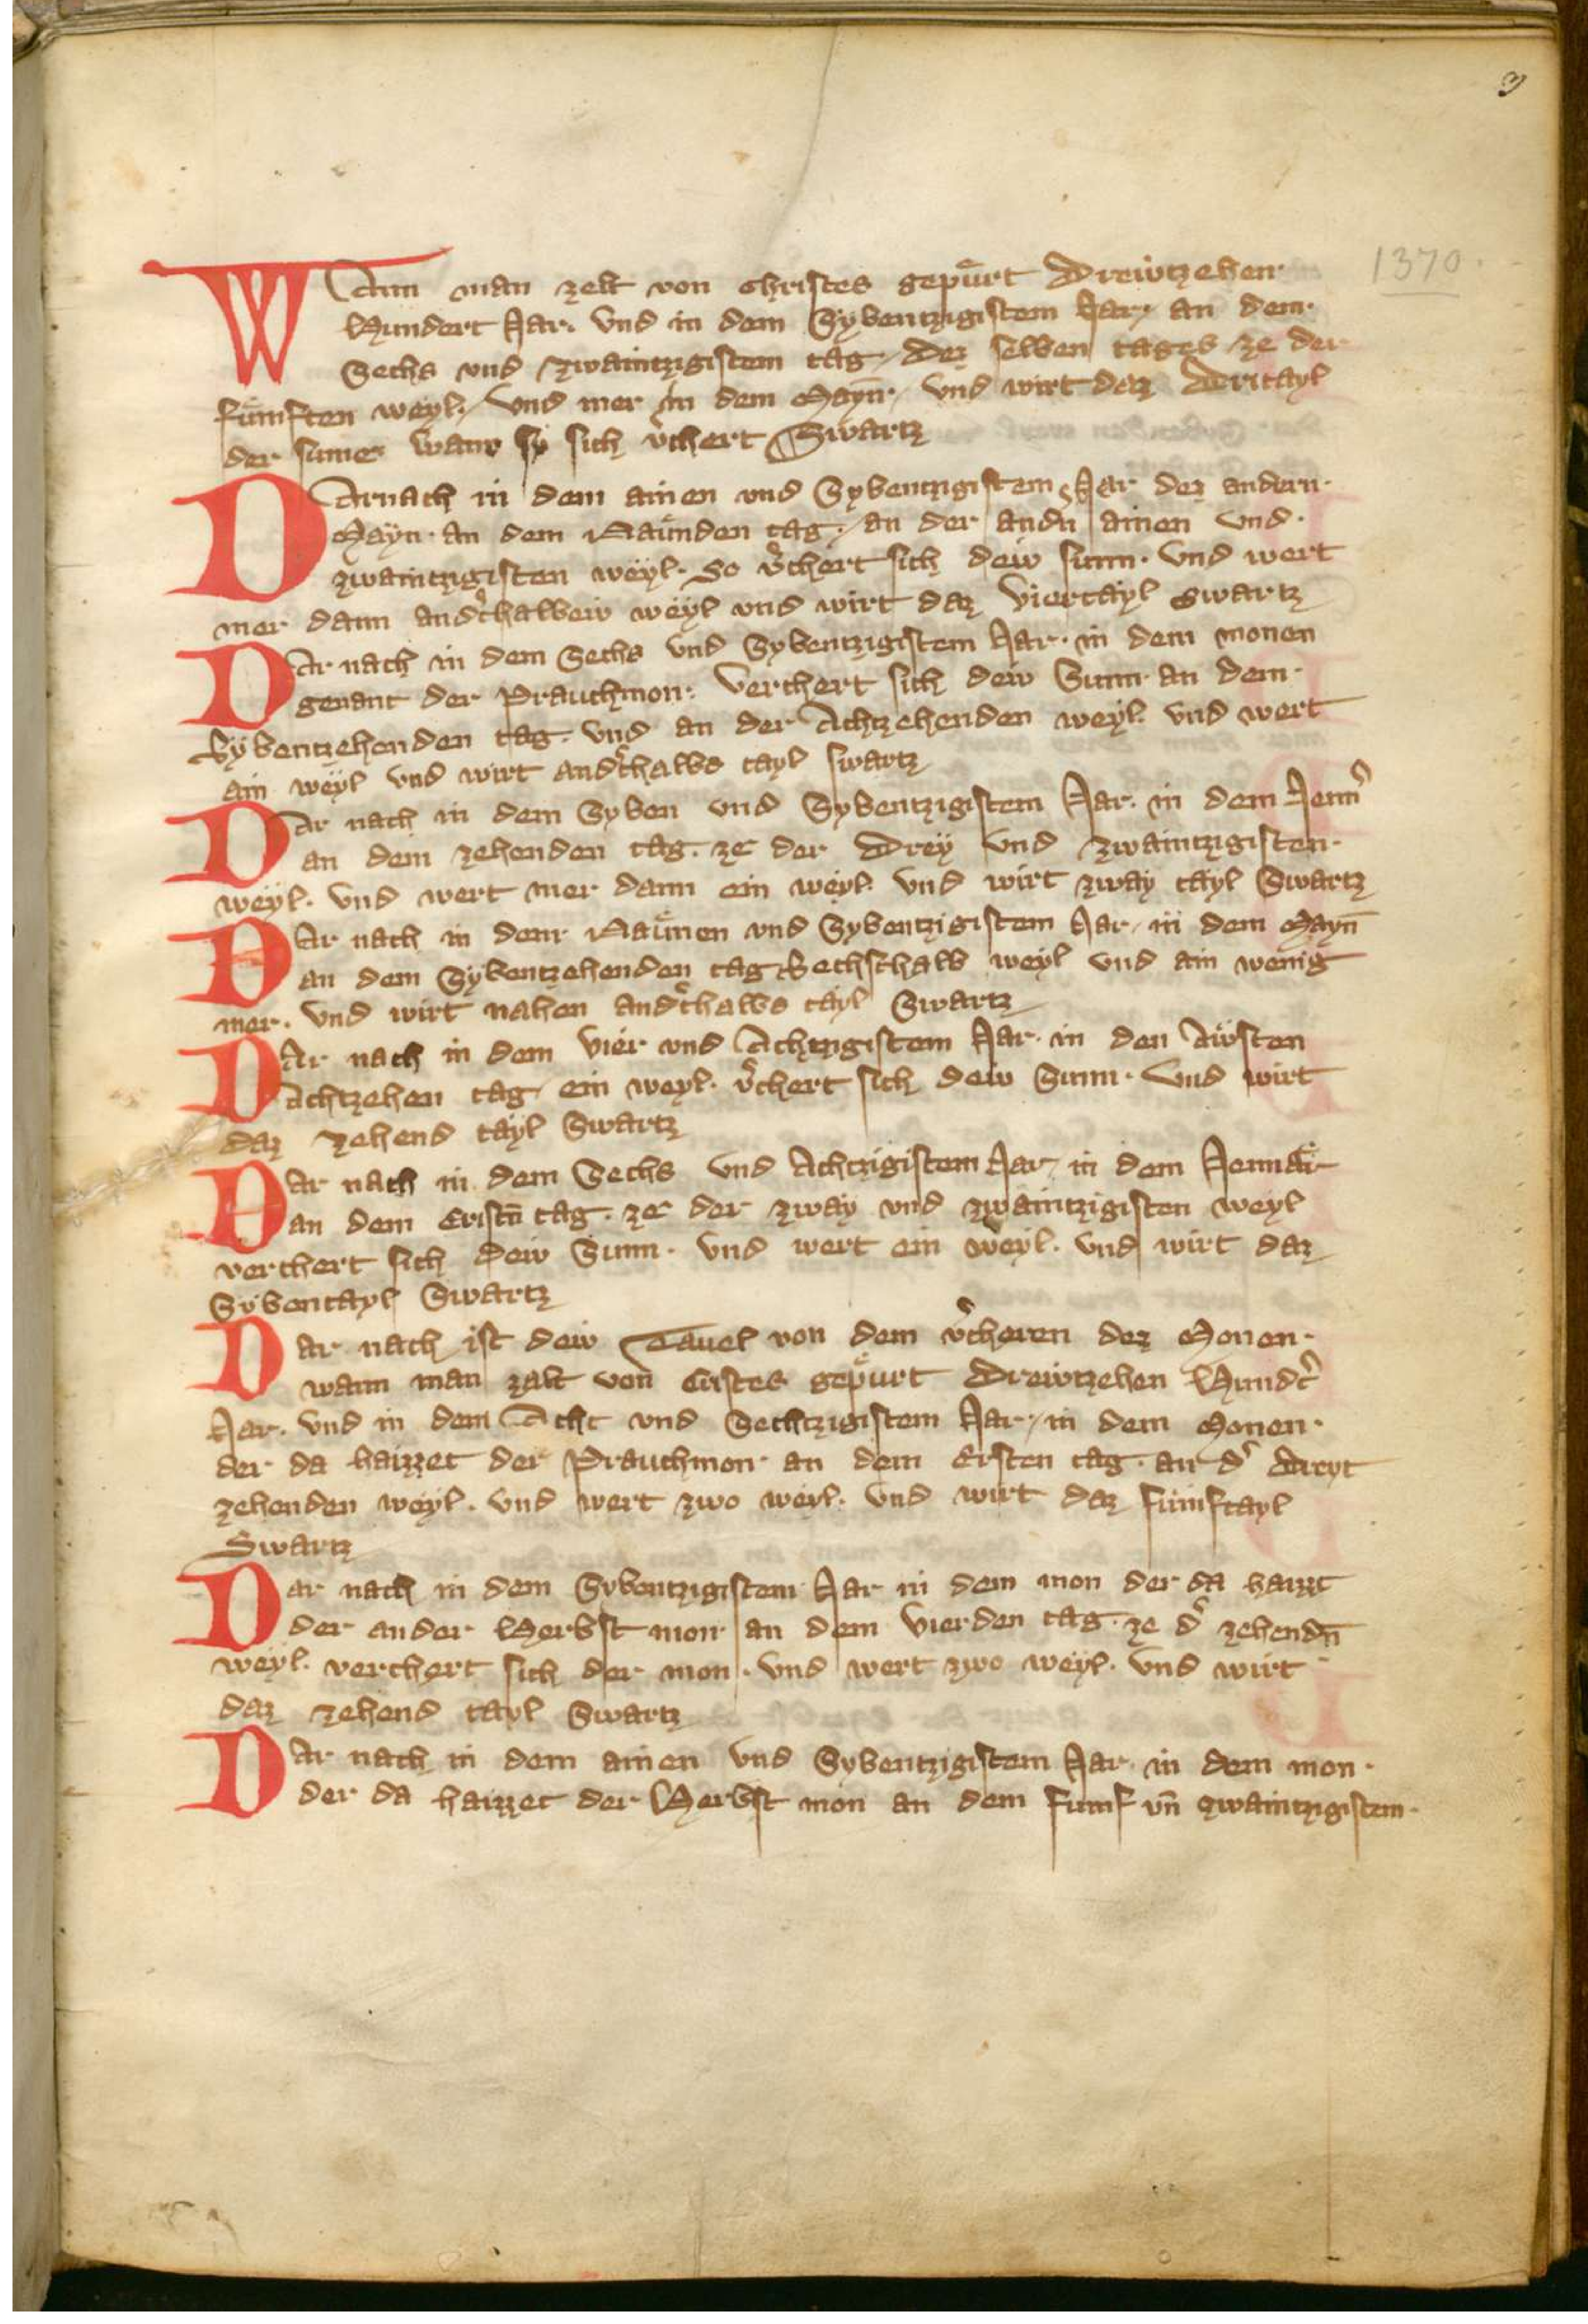 3
1370.
Wann man zelt von christes gepuͤrt Drewtzehen
Hundert Jar. Vnd in dem Sybentzigistem Jar, an dem
Sechs vnd zwaintzigistem tag, dez selben tages ze der
fuͤmften weyl, vnd mer in dem Mayn, vnd wirt daz Dritayl
der sunne wann sy sich v̉chert Swartz
Darnach in dem ainen vnd Sybentzigistem Jar dez andern
Mayn an dem Nauͤnden tag, an der andn̄ ainen vnd
zwaintzigisten weyl. So v̉chert sich dew sunn. Vnd wert
mer dann and̉thalbew weyl vnd wirt daz Viertayl swartz
Dar nach in dem Sechs vnd Sybentzigistem Jar. in dem monen
genant der Prauchmon. Verchert sich dew Sunn an dem
Sybentzehenden tag. vnd an der Achtzehenden weyl. vnd wert
ain weyl vnd wirt and̉thalbs tayl swartz
Dar nach in dem Syben vnd Sybentzigistem Jar. in dem Jenn̉
an dem zehenden tag. ze der Drey vnd zwaintzigisten
weyl. vnd wert mer dann ein weyl. vnd wirt zway tayl Swartz
Dar nach in dem Nauͤnen vnd Sybentzigistem Jar, in dem Mayn̄
an dem Sybentzehenden tag Sechsthalb weyl vnd ain wenig
mer. vnd wirt nahen and̉thalbs tayl Swartz
Dar nach in dem vier vnd Achtzigistem Jar. in den Awsten
Achtzehen tag ein weyl. v̉chert sich dew Sunn. Vnd wirt
daz zehend tayl Swartz
Dar nach in dem Sechs vnd Achtzigistem Jar, in dem Jennaͤr
an dem Eristn̄ tag. ze der zway vnd zwaintzigisten weyl
verchert sich dew Sunn. vnd wert ein weyl. vnd wirt daz
Sybentayl Swartz
Dar nach ist dew Tauel von dem v̉cheren dez Monen.
wann man zalt von Cristes gepuͤrt Drewtzehen Hundt̉
Jar. vnd in dem Acht vnd Sechtzigistem Jar, in dem Monen.
der da haizzet der Prauchmon an dem Ersten tag. an d̉ dreyt
zehenden weyl. vnd wert zwo weyl. vnd wirt daz fumftayl
Swartz
Dar nach in dem Sybentzigistem Jar in dem mon der da haizzt
der ander Herbst mon an dem Vierden tag. ze d̉ zehendn̄
weyl. verchert sich der mon. vnd wert zwo weyl. vnd wirt
daz zehend tayl Swartz
Dar nach in dem ainen vnd Sybentzigistem Jar. in dem mon.
der da haizzet der Herbst mon an dem fumf vn̄ zwaintzigistem